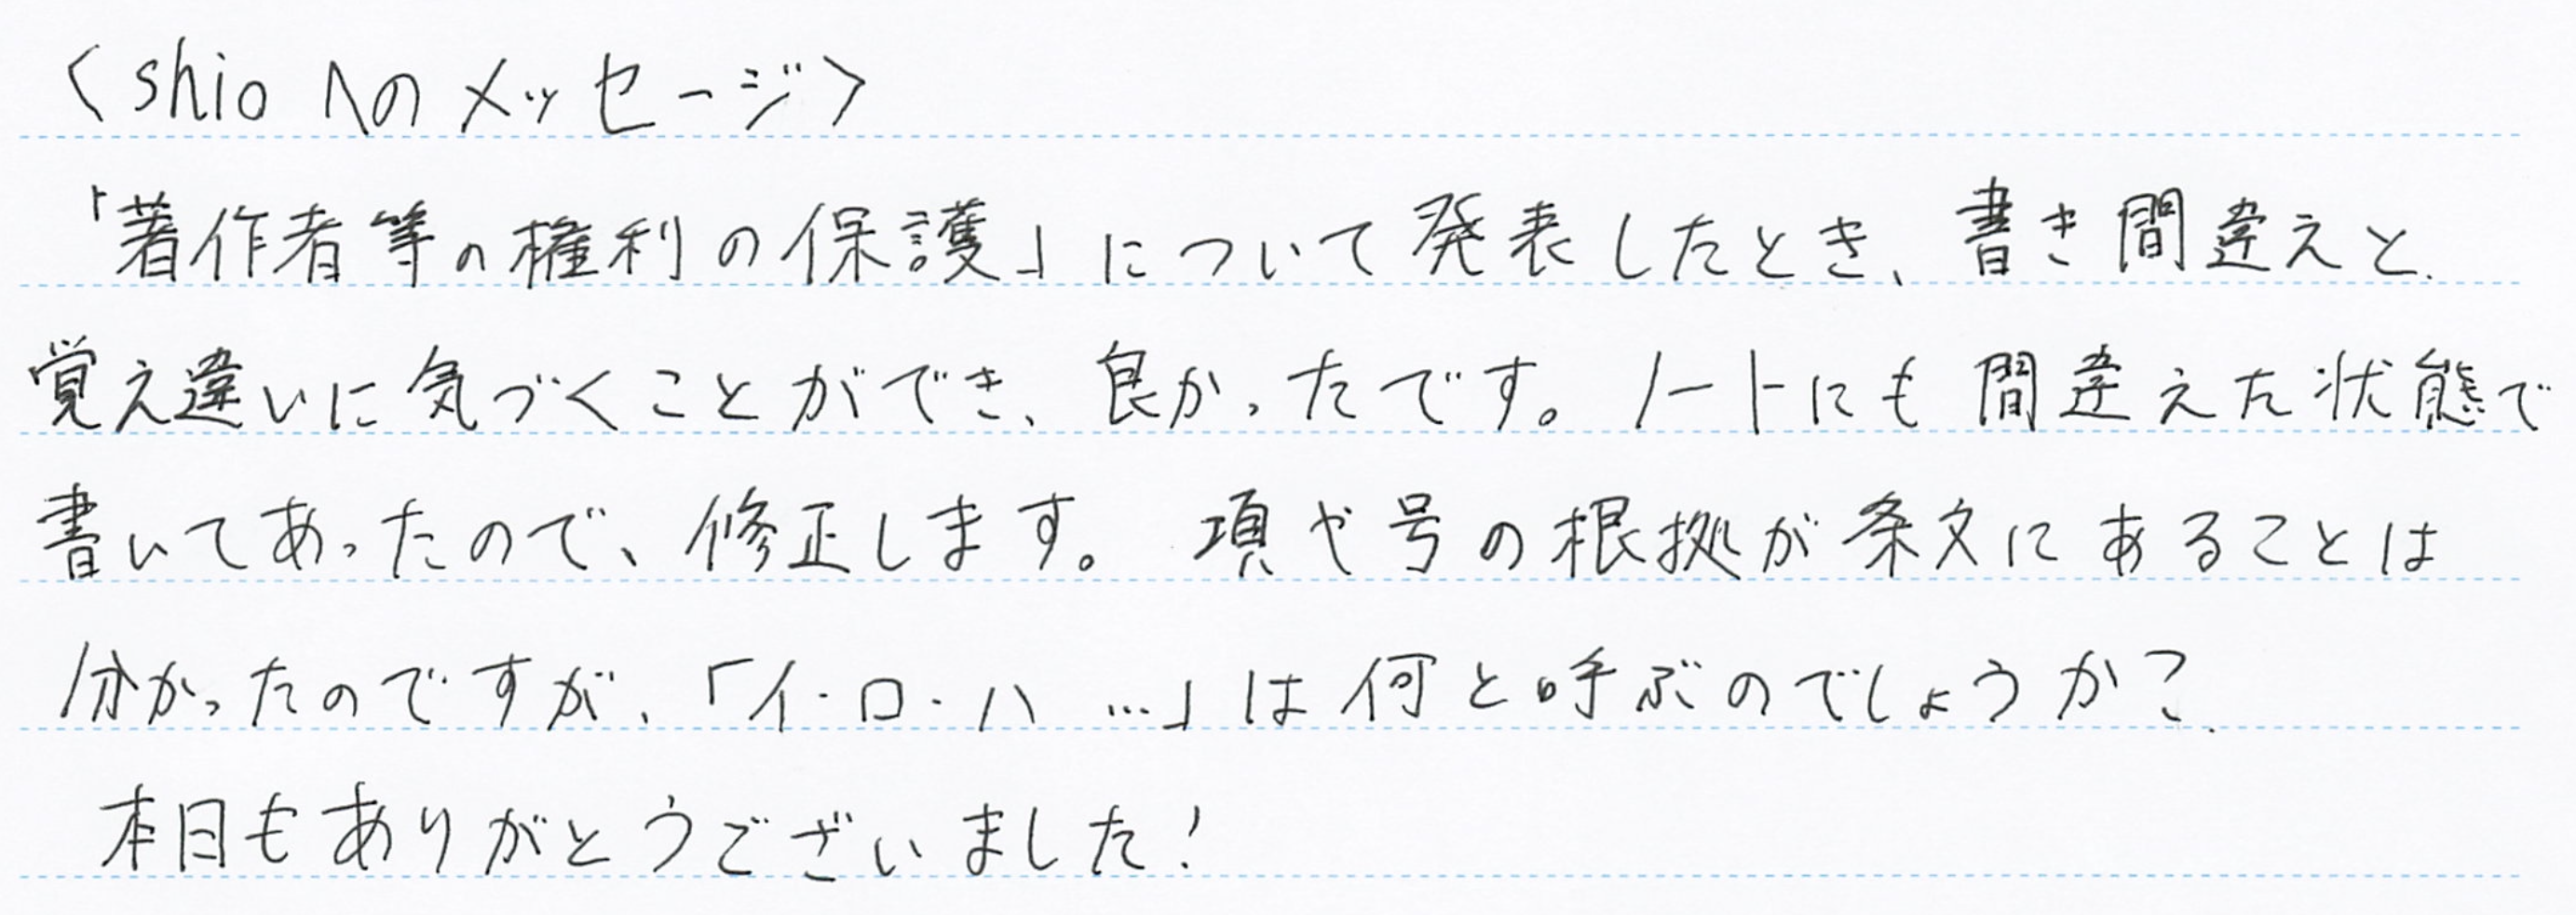 〈shioへのメッセージ〉
「著作者等の権利の保護」について発表したとき、書き間違えと
覚え違いに気づくことができ、良かったです。ノートにも間違えた状態で
書いてあったので、修正します。項や号の根拠が条文にあることは
分かったのですが、「イ・ロ・ハ …」は何と呼ぶのでしょうか？
本日もありがとうございました！